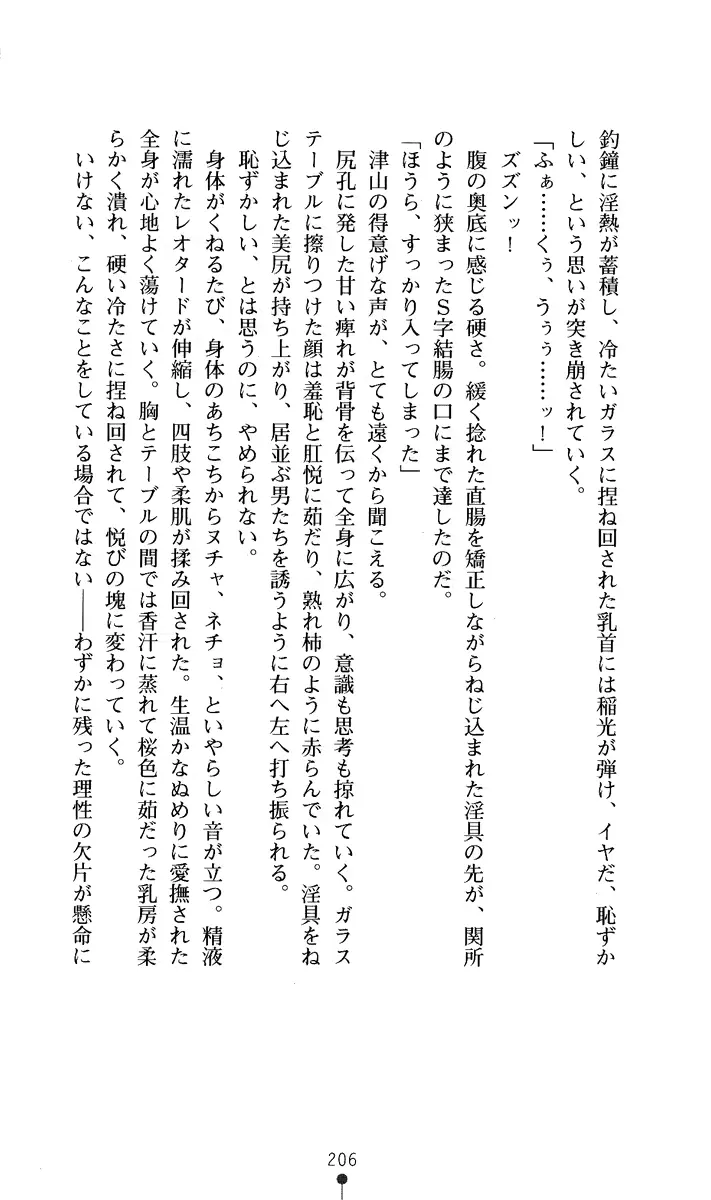 釣鐘に淫熱が蓄積し、冷たいガラスに捏ね回された乳首には稲光が弾け、イヤだ、恥ずか
しい、という思いが突き崩されていく。
「ふぁ……くぅ、うぅぅ……ッ！」
ズズンッ！
腹の奥底に感じる硬さ。緩く捻れた直腸を矯正しながらねじ込まれた淫具の先が、関所
のように狭まったＳ字結腸の口にまで達したのだ。
「ほうら、すっかり入ってしまった」
津山の得意げな声が、とても遠くから聞こえる。
尻孔に発した甘い痺れが背骨を伝って全身に広がり、意識も思考も掠れていく。ガラス
テーブルに擦りつけた顔は羞恥と肛悦に茹だり、熟れ柿のように赤らんでいた。淫具をね
じ込まれた美尻が持ち上がり、居並ぶ男たちを誘うように右へ左へ打ち振られる。
恥ずかしい、とは思うのに、やめられない。
身体がくねるたび、身体のあちこちからヌチャ、ネチョ、といやらしい音が立つ。精液
に濡れたレオタードが伸縮し、四肢や柔肌が揉み回された。生温かなぬめりに愛撫された
全身が心地よく蕩けていく。胸とテーブルの間では香汗に蒸れて桜色に茹だった乳房が柔
らかく潰れ、硬い冷たさに捏ね回されて、悦びの塊に変わっていく。
いけない、こんなことをしている場合ではない――わずかに残った理性の欠片が懸命に
206